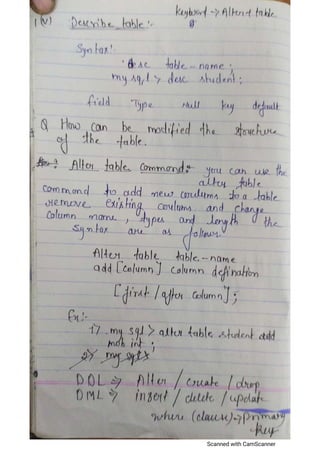 Keyword -> Alter t table
(v) Describe table :-
Syntax :
desc table-name ;
mysql > desc student ;
field Type Null key default
Q How can be modified the structure
of the table.
Ans :- Alter table Command :- you can use the
alter table
command to add new coulums to a table
remove existing coulums and change
column name , types and length the
Syntax are as follows
Alter table table-name
add [column] column defination
[first / after column] ;
Ex :-
1) my sql > alter table student add
mob int ;
2) my sql >
DDL => Alter / create / drop
DML => insert / delete / update
where (clause) -> primary
key
Scanned with CamScanner